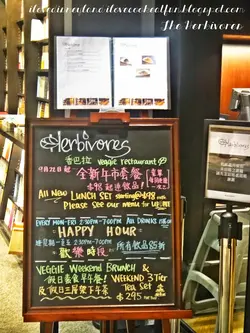 ilovedisneyland-ilovecocktailfun.blogspot.com
The Herbivores
Herbivores
香巴拉 veggie restaurant
全新午市套餐
$98 起連飲品!
All New LUNCH SET starting@$98 with
Please see our menu for
EVERY MON-FRI 2:30pm-7:00pm ALL DRINKS
HAPPY HOUR
逢星期一至五 2:30pm-7:00pm
歡樂時段 所有飲品85折
VEGGIE Weekend BRUNCH &
假日素食早午餐!
及假日三層架下午茶
WEEKEND 3Tier
Tea Set
@ $295 for two